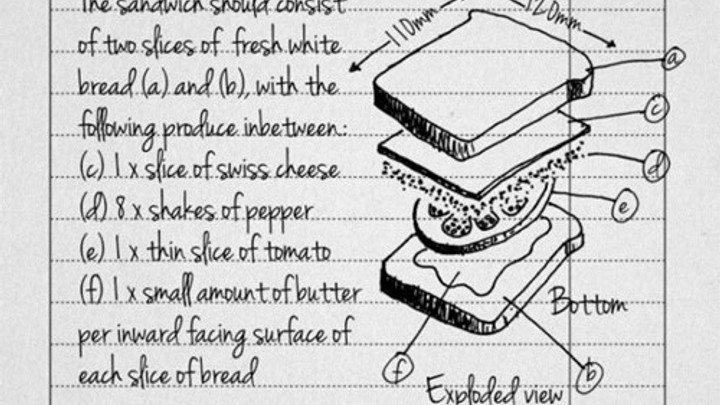 The sandwich should consist
of two slices of fresh white
bread (a) and (b), with the
following produce inbetween:
(c) 1 x slice of swiss cheese
(d) 8 x shakes of pepper
(e) 1 x thin slice of tomato
(f) 1 x small amount of butter
per inward facing surface of
each slice of bread
110mm
120mm
a
c
d
e
Bottom
f
b
Exploded view